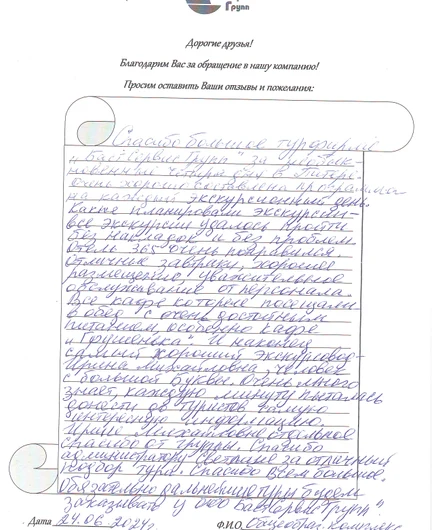 Групп
Дорогие друзья!
Благодарим Вас за обращение в нашу компанию!
Просим оставить Ваши отзывы и пожелания:
Спасибо большое турфирме
"БастСервисГрупп" за
четыре дня в Питере.
Очень хорошо составлена программа
на каждый экскурсионный день.
Какие планировали экскурсии -
все экскурсии удалось пройти
без накладок и без проблем
Отель 365 очень понравился.
Отличные завтраки, хорошее
размещение, уважительное
обслуживание от персонала.
Все кафе которые посещали
в обед с очень достойным
питанием, особенно кафе
И наконец
самый хороший экскурсовод -
Ирина Михайловна, человек
с большой буквы. Очень много
знает, каждую минуту пыталась
донести до туристов самую
интересную информацию.
Ирине Михайловне отдельное
спасибо от группы. Спасибо
администратору Светлане за отличный
подбор тура. Спасибо Всем большое.
Обязательно дальнейшие туры будем
заказывать у
Дата 24.06.2024г. Ф.И.О.